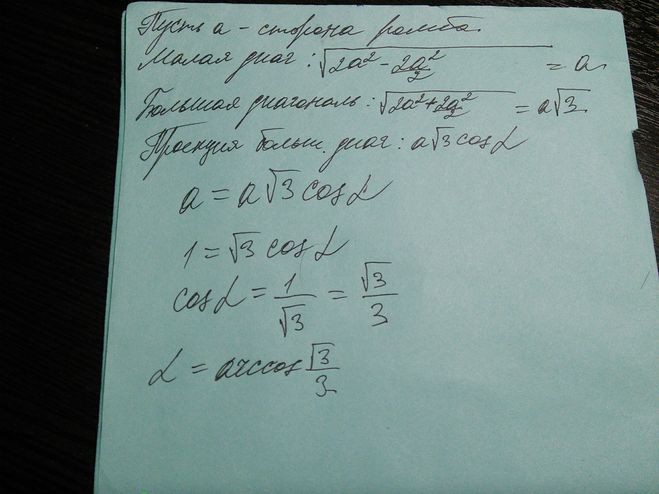 Пусть a - сторона ромба.
Малая диаг: √(2a² - 2a²/2) = a.
Большая диагональ: √(2a² + 2a²/2) = a√3
Проекция больш. диаг: a√3 cos α
a = a√3 cos α
1 = √3 cos α
cos α = 1/√3 = √3/3
α = arccos √3/3